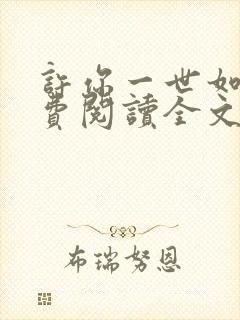 許你一世如
費閱讀全文
布瑞努恩